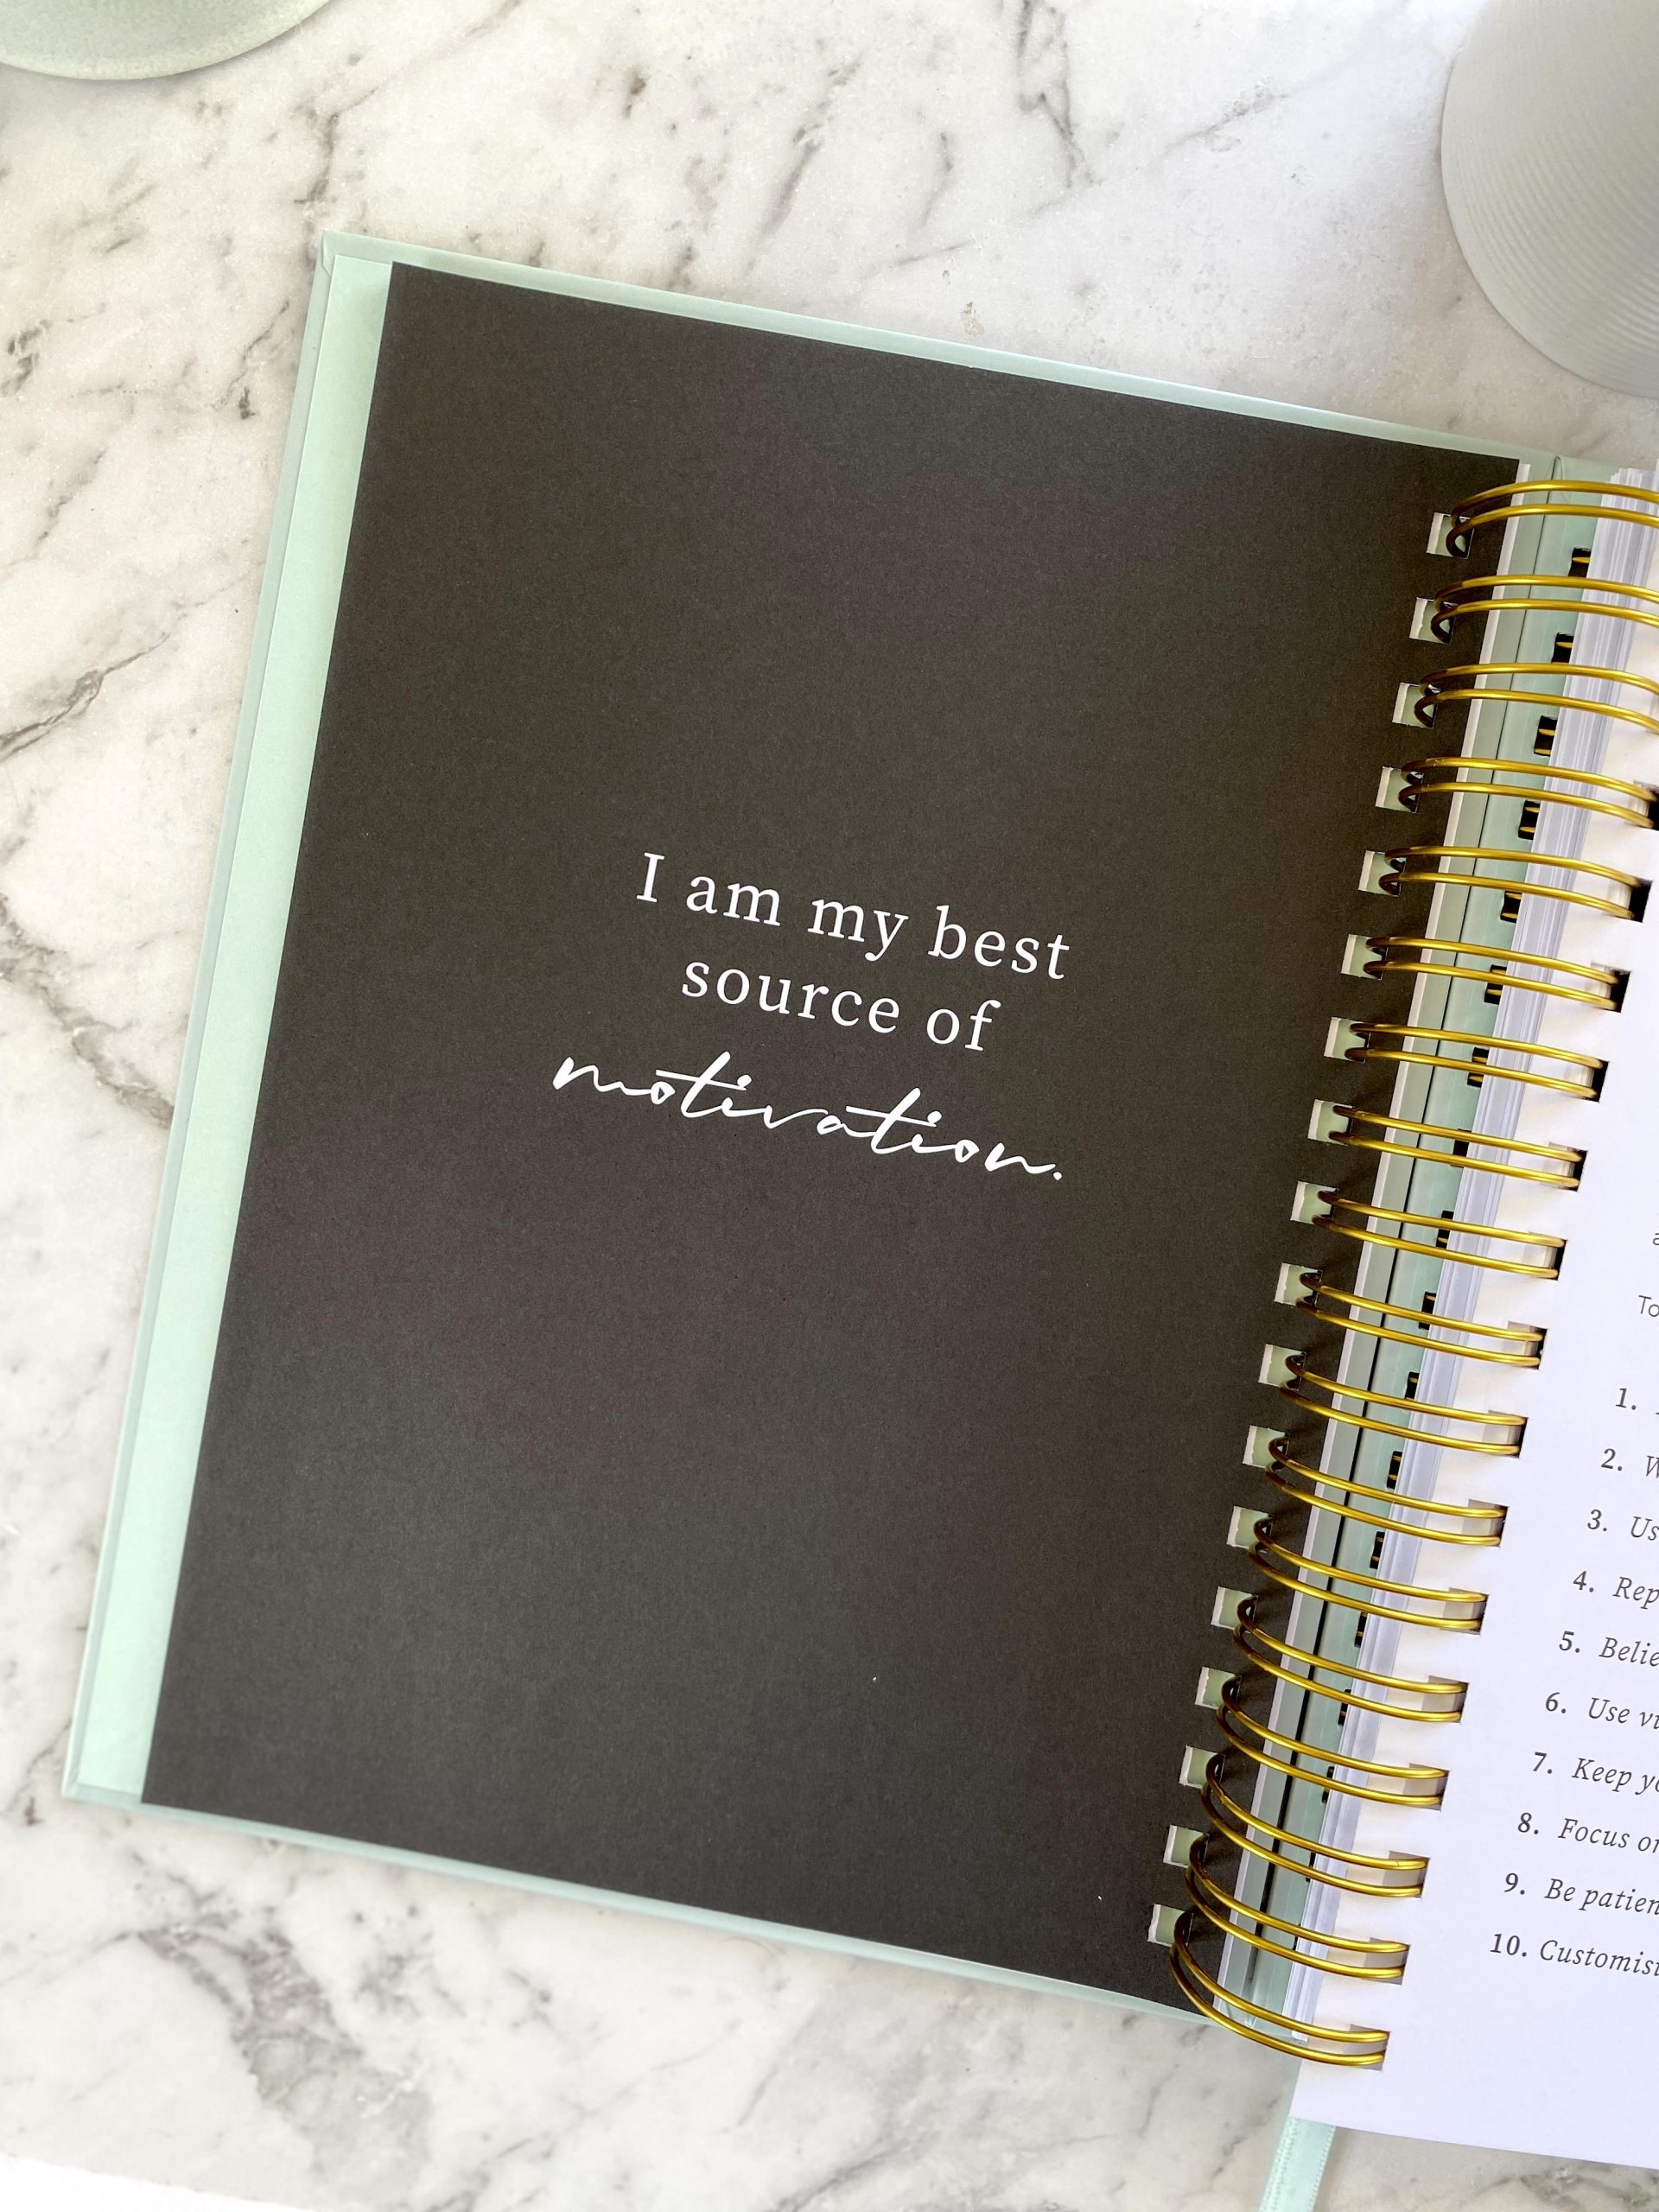 I am my best
source of
motivation.
To
1.
2.
3. Us
4. Rep
5. Belie
6. Use vi
7. Keep yo
8. Focus on
9. Be patien
10. Customisi